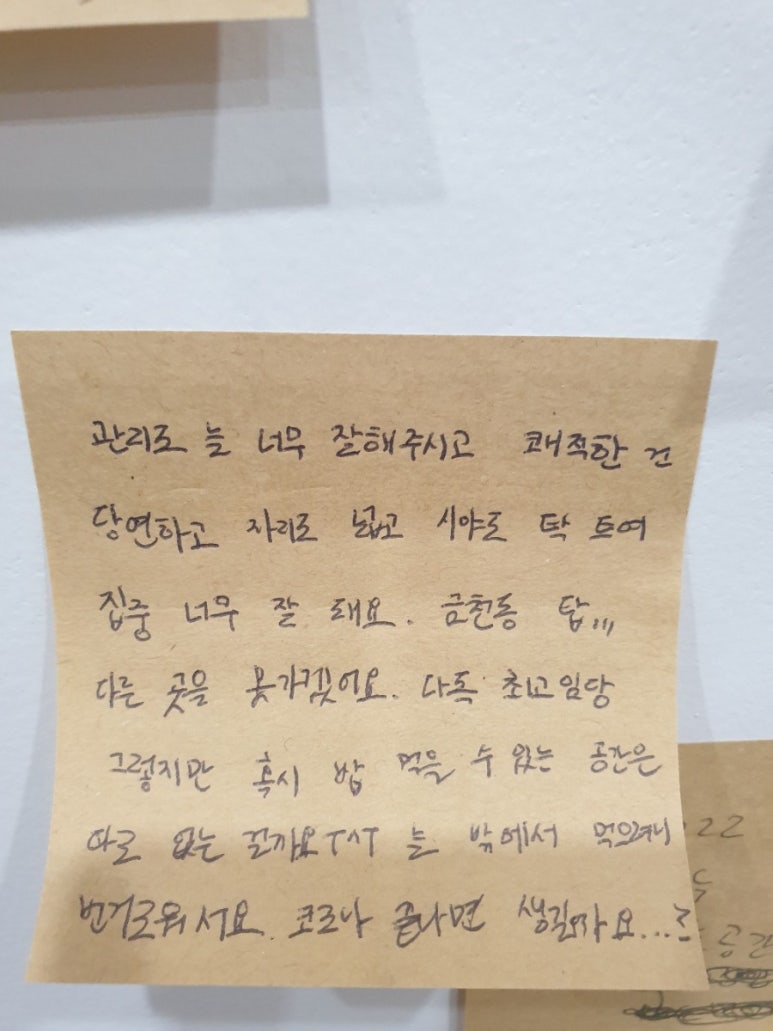 관리도 늘 너무 잘해주시고 쾌적한 건
당연하고 자리도 넓고 시야도 탁 트여
집중 너무 잘 돼요. 금천동 탑,,,
다른 곳을 못가겠어요. 다독 최고임당
그렇지만 혹시 밥 먹을 수 있는 공간은
따로 없는 걸까요ㅜㅅㅜ 늘 밖에서 먹으려니
번거로워서요. 코로나 끝나면 생길까요...ㄹ
22
공간